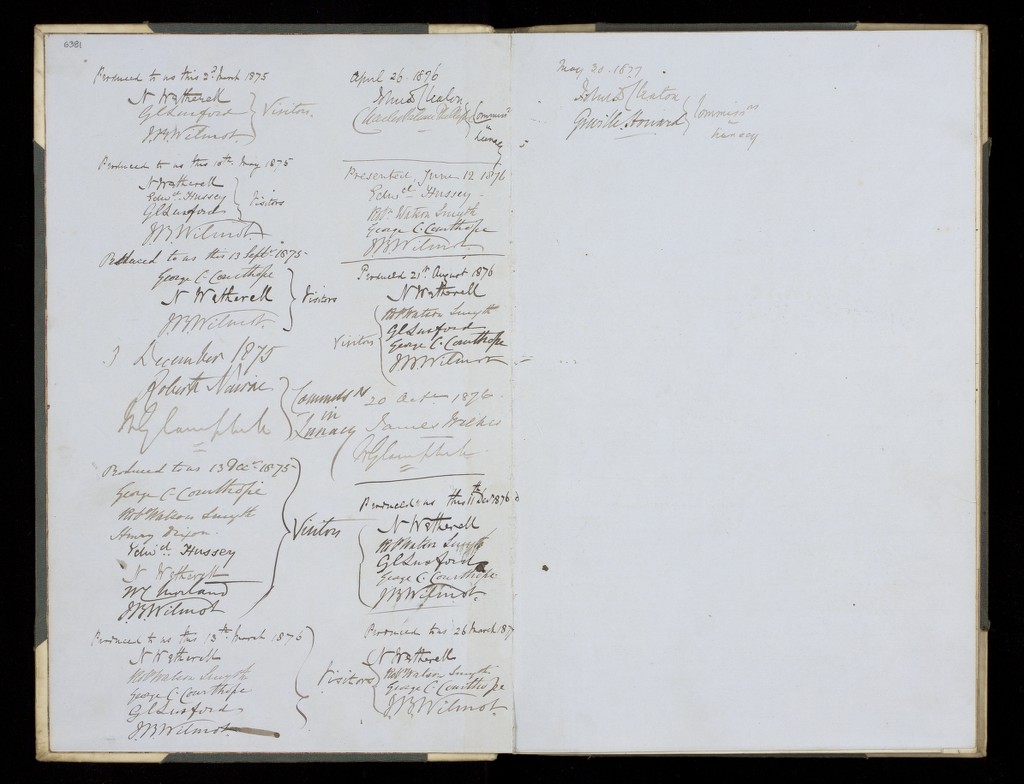 6381
Produced to us this 2d March 1875
N Wetherell
G L Luxford
J.B. Wilmot
Visitors
Produced to us this 10th May 1875
N Wetherell
Edwd Hussey
G L Luxford
J.B. Wilmot
Visitors
Produced to us this 13 Septr 1875
George C. Courthope
N Wetherell
J.B. Wilmot
Visitors
3 December 1875
Robert Nairne
Commissrs
in
Lunacy
Produced to us 13 Decr 1875
George C. Courthope
Robt Watson Smyth
Edwd Hussey
N Wetherell
J.B. Wilmot
Visitors
Produced to us this 13th March 1876
N Wetherell
Robt Watson Smyth
George C. Courthope
G L Luxford
J.B. Wilmot
Visitors
April 26. 1876
John D Cleaton
Charles Palmer Phillips
Commissrs
in
Lunacy
Presented June 12 1876
Edwd Hussey
Robt Watson Smyth
George C. Courthope
J.B. Wilmot
Produced 21st August 1876
N Wetherell
Robt Watson Smyth
G L Luxford
George C. Courthope
J.B. Wilmot
Visitors
20 Octr 1876
James Wilkes
Produced to us this 11th Decr 1876
N Wetherell
Robt Watson Smyth
G L Luxford
George C. Courthope
J.B. Wilmot
Produced to us 26 March 187
N Wetherell
Robt Watson Smyth
George C. Courthope
J.B. Wilmot
May 30. 1877
John D Cleaton
Greville Howard
Commissrs
in
Lunacy